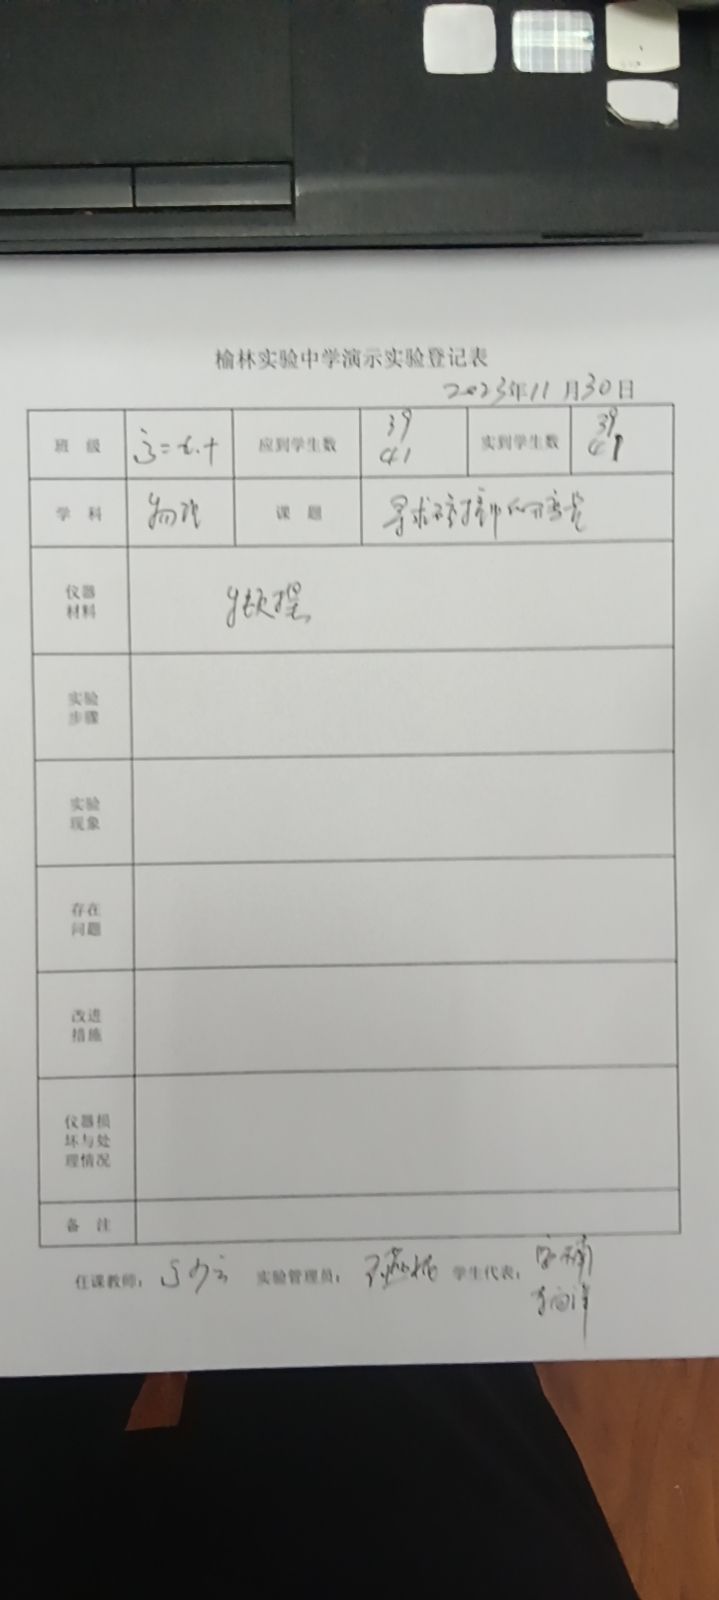 榆林实验中学演示实验登记表
2023年11月30日
班 级 高二 应到学生数 39 41 实到学生数 39 41
学 科 物理 课 题 寻求碰撞中的不变量
仪器
材料
实验
步骤
实验
现象
存在
问题
改进
措施
仪器损
坏与处
理情况
备 注
任课教师： 实验管理员： 学生代表：